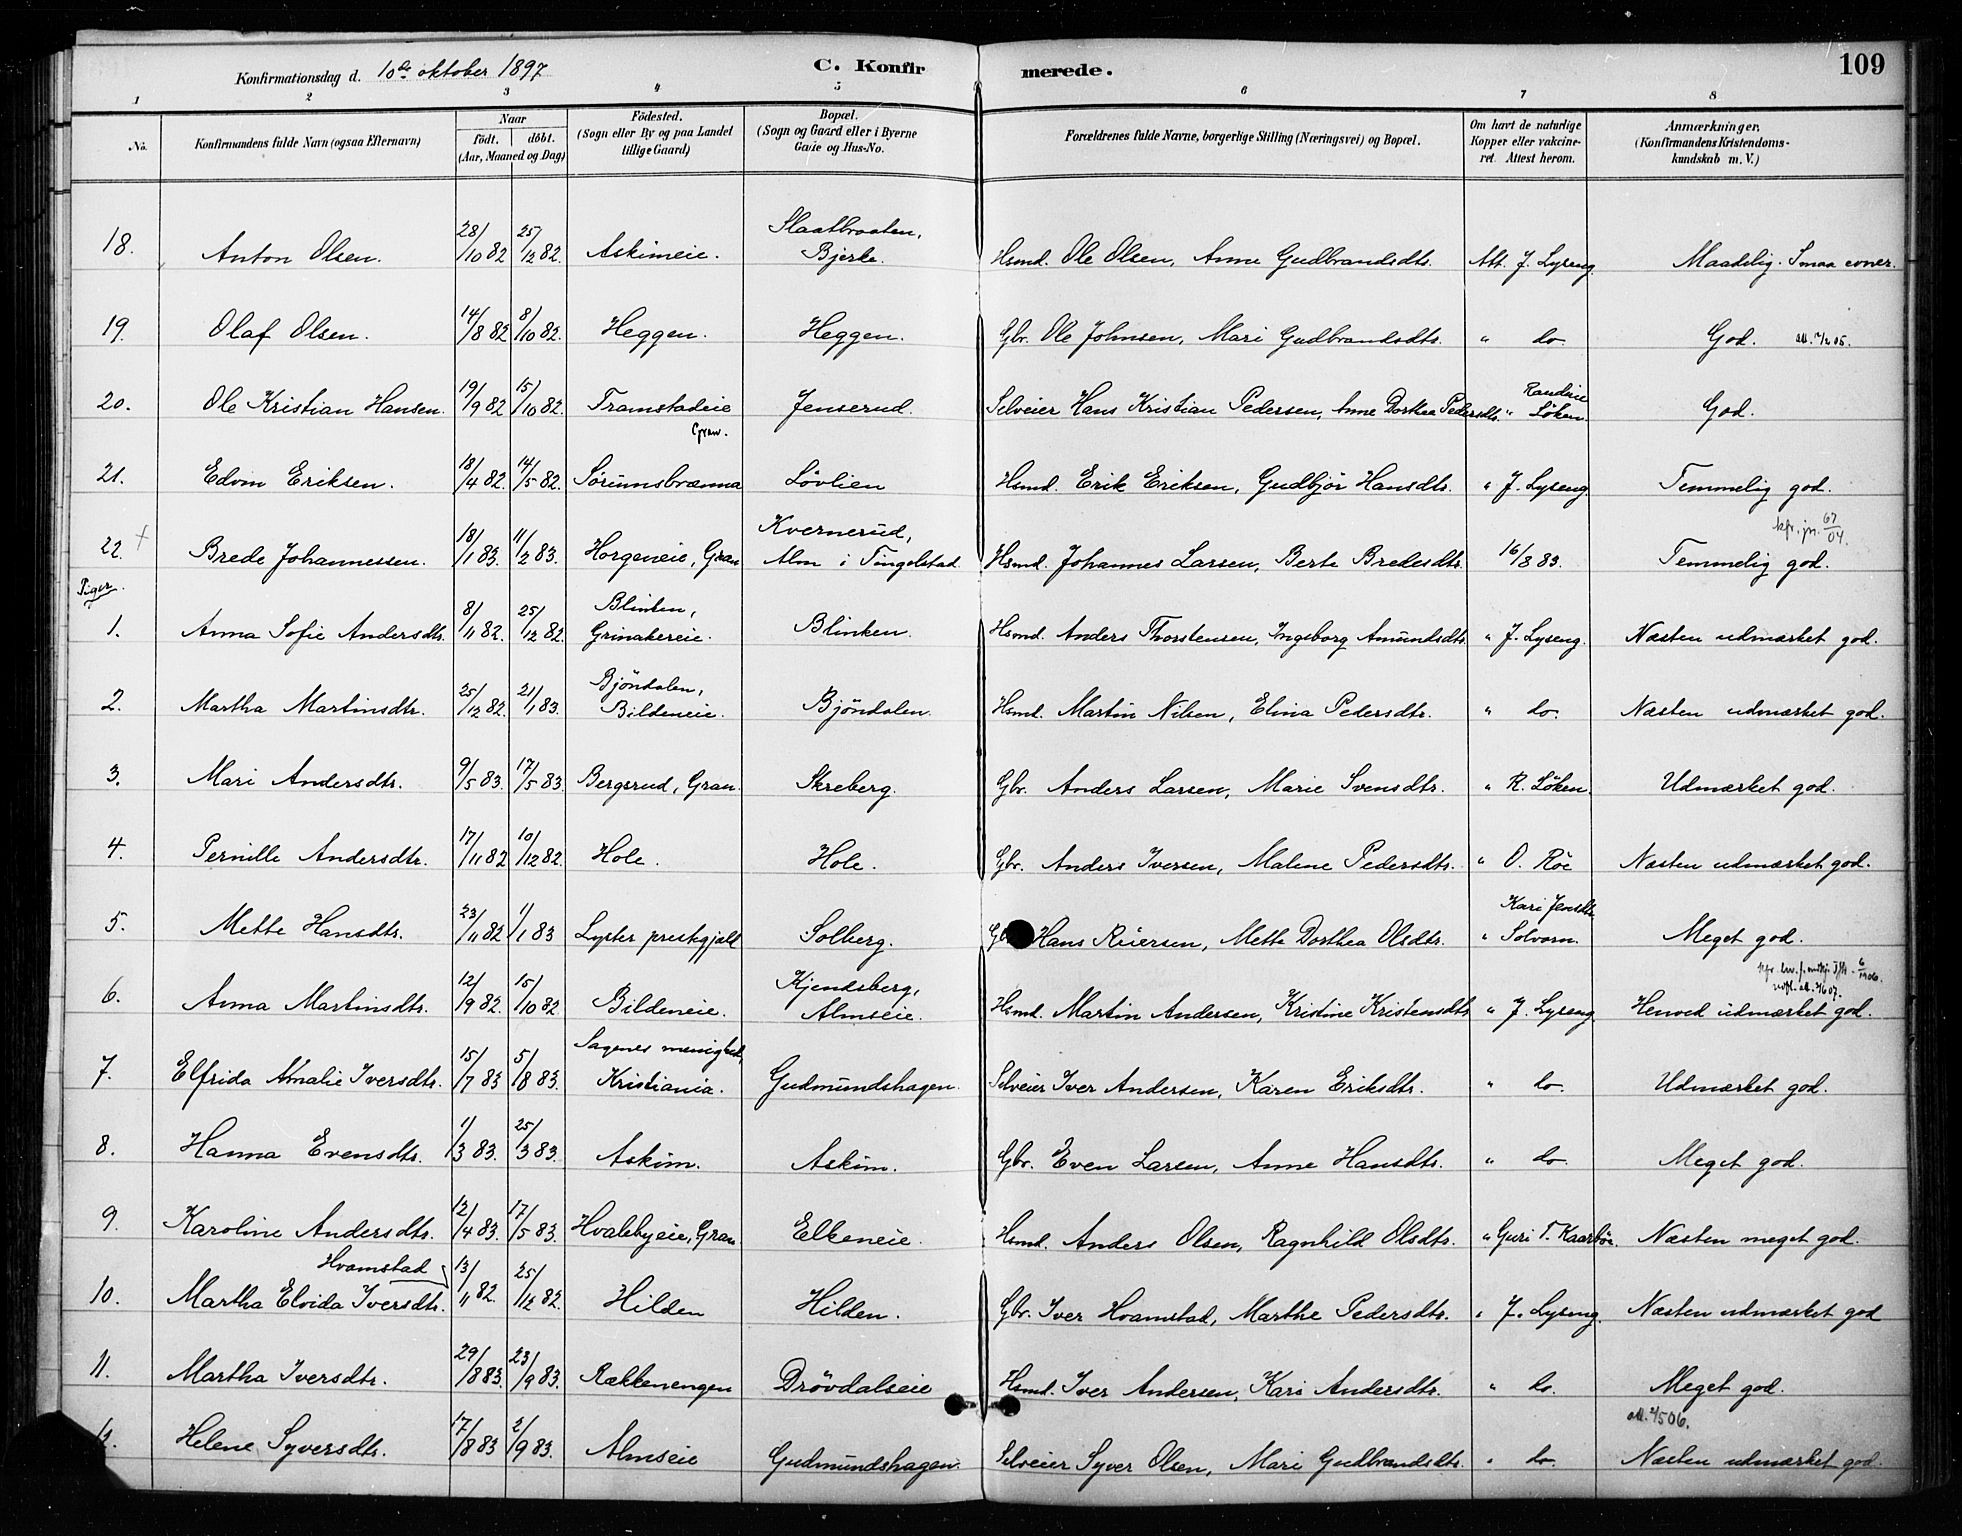 Konfirmationsdag d. 10de oktober 1897 C. Konfir merede. 109
1 2 3 4 5 6 7 8
No. Konfirmandens fulde Navn (ogsaa Efternavn) Naar født. døbt. (Aar, Maaned og Dag) Fødested. (Sogn eller By og paa Landet tillige Gaard) Bopæl. (Sogn og Gaard eller i Byerne Gade og Hus-No. Forældrenes fulde Navne, borgerlige Stilling (Næringsvei) og Bopæl. Om havt de naturlige Kopper eller vakcineret. Attest herom. Anmærkninger. (Konfirmandens Kristendomskundskab m. V.)
18. Anton Olsen. 28/10 82 25/12 82. Askimeie. Slaatbraaten, Bjerke. Hsmd. Ole Olsen, Anne Gudbrandsdtr. Att. J. Lyseng. Maadelig. Smaa evner.
19. Olaf Olsen. 14/8 82 8/10 82. Heggen. Heggen. Gbr. Ole Johnsen, Mari Gudbrandsdtr. " do. God.
20. Ole Kristian Hansen. 19/9 82 15/10 82. Tramstadeie Gran. Jenserud. Selveier Hans Kristian Pedersen, Anne Dorthea Pedersdtr. " Randine Løken. God.
21. Edvin Eriksen. 18/4 82. 14/5 82. Sørumsbrænna Løvlien Hsmd. Erik Eriksen, Gudbjør Hansdtr. " J. Lyseng. Temmelig god.
22. + Brede Johannessen. 18/1 83. 11/2 83. Horgeneie, Gran Kvernerud, Alm i Tingelstad Hsmd. Johannes Larsen, Berte Bredesdtr. 16/8 83. kfr. jn. 67/04. Temmelig god.
Piger.
1. Anna Sofie Andersdtr. 8/11 82. 25/12 82. Blinken, Grinakereie. Blinken. Hsmd. Anders Thorstensen, Ingeborg Amundsdtr. " J. Lyseng. Næsten udmærket god.
2. Martha Martinsdtr. 25/12 82. 21/1 83. Bjöndalen, Bildeneie. Bjöndalen. Hsmd. Martin Nilsen, Elina Pedersdtr. " do. Næsten udmærket god.
3. Mari Andersdtr. 9/5 83. 17/5 83. Bergsrud, Gran. Skreberg. Gbr. Anders Larsen, Marie Svensdtr. " R. Löken. Udmærket god.
4. Pernille Andersdtr. 17/11 82 10/12 82. Hole. Hole. Gbr. Anders Iversen, Malene Pedersdtr. " O. Röe Næsten udmærket god.
5. Mette Hansdtr. 23/11 82 1/1 83 Lyster prestgjæld Solberg. Gbr. Hans Reiersen, Mette Dorthea Olsdtr. " Kari Jensdtr. Solvorn. Meget god.
6. Anna Martinsdtr. 12/9 82. 15/10 82. Bildeneie. Kjendsberg, Almseie. Hsmd. Martin Andersen, Kristine Kristensdtr. " J. Lyseng Henved udmærket god.
7. Elfrida Amalie Iversdtr. 15/7 83 5/8 83. Sagenes menighed, Kristiania. Gudmundshagen. Selveier Iver Andersen, Karen Eriksdtr. " do. Udmærket god.
8. Hanna Evensdtr. 1/3 83. 25/3 83. Askim. Askim. Gbr. Even Larsen, Anne Hansdtr. " do. Meget god.
9. Karoline Andersdtr. 12/4 83. 17/5 83. Hvalebyeie, Gran Elkeneie. Hsmd. Anders Olsen, Ragnhild Olsdtr. " Guri T. Kaarböe. Næsten meget god.
10. Martha Elvida Iversdtr. Hvamstad 13/11 82. 25/12 82. Hilden Hilden. Gbr. Iver Hvamstad, Marthe Pedersdtr. " J. Lyseng. Næsten udmærket god
11. Martha Iversdtr. 29/8 83. 23/9 83. Rækkenengen Drövdalseie Hsmd. Iver Andersen, Kari Andersdtr. " do. Meget god.
12. Helene Syversdtr. 17/8 83 2/9 83. Almseie Gudmundshagen. Selveier Syver Olsen, Mari Gudbrandsdtr. " do. Næsten udmærket god.